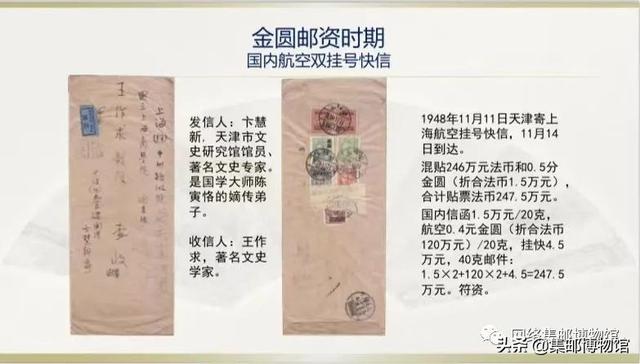 金圆邮资时期
国内航空双挂号快信
发信人：卞慧
新，天津市文
史研究馆馆员、
著名文史专家。
是国学大师陈
寅恪的嫡传弟
子。
收信人：王作
求，著名文史
学家。
1948年11月11日天津寄上
海航空挂号快信，11月14
日到达。
混贴246万元法币和0.5分
金圆（折合法币1.5万元），
合计贴票法币247.5万元。
国内信函1.5万元/20克，
航空0.4元金圆（折合法币
120万元）/20克，挂快4.5
万元，40克邮件：
1.5×2+120×2+4.5=247.5
万元。符资。
王作求教授 查收
网络集邮博物馆
头条@集邮博物馆